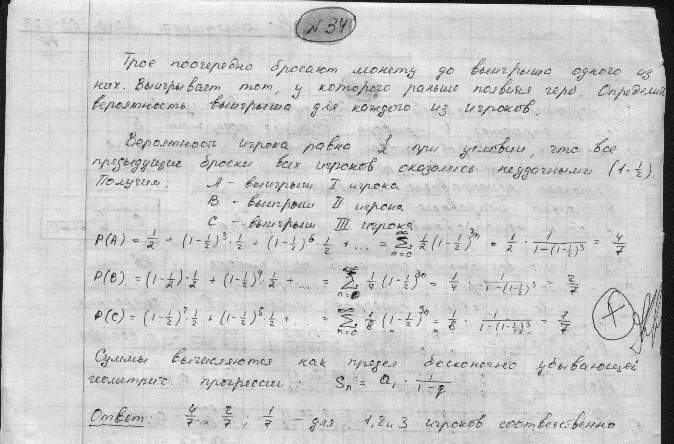 № 34
Трое поочередно бросают монету до выигрыша одного из
них. Выигрывает тот, у которого раньше появится герб. Определить
вероятность выигрыша для каждого из игроков
Вероятность игрока равна 1/2 при условии, что все
предыдущие броски всех игроков оказались неудачными (1-1/2).
Получим: A - выигрыш I игрока
B - выигрыш II игрока
C - выигрыш III игрока
P(A) = 1/2 + (1-1/2)³·1/2 + (1-1/2)⁶·1/2 + ... = ∑ₙ₌₀ 1/2 (1-1/2)³ⁿ = 1/2 · 1/(1-(1-1/2)³) = 4/7
P(B) = (1-1/2)·1/2 + (1-1/2)⁴·1/2 + ... = ∑ₙ₌₀ 1/4 (1-1/2)³ⁿ = 1/4 · 1/(1-(1-1/2)³) = 2/7
P(C) = (1-1/2)²·1/2 + (1-1/2)⁵·1/2 + ... = ∑ₙ₌₀ 1/8 (1-1/2)³ⁿ = 1/8 · 1/(1-(1-1/2)³) = 1/7
Суммы вычисляются как предел бесконечно убывающей
геометрич прогрессии: Sₙ = a₁ · 1/(1-q)
Ответ: 4/7, 2/7; 1/7 - для 1, 2 и 3 игроков соответственно